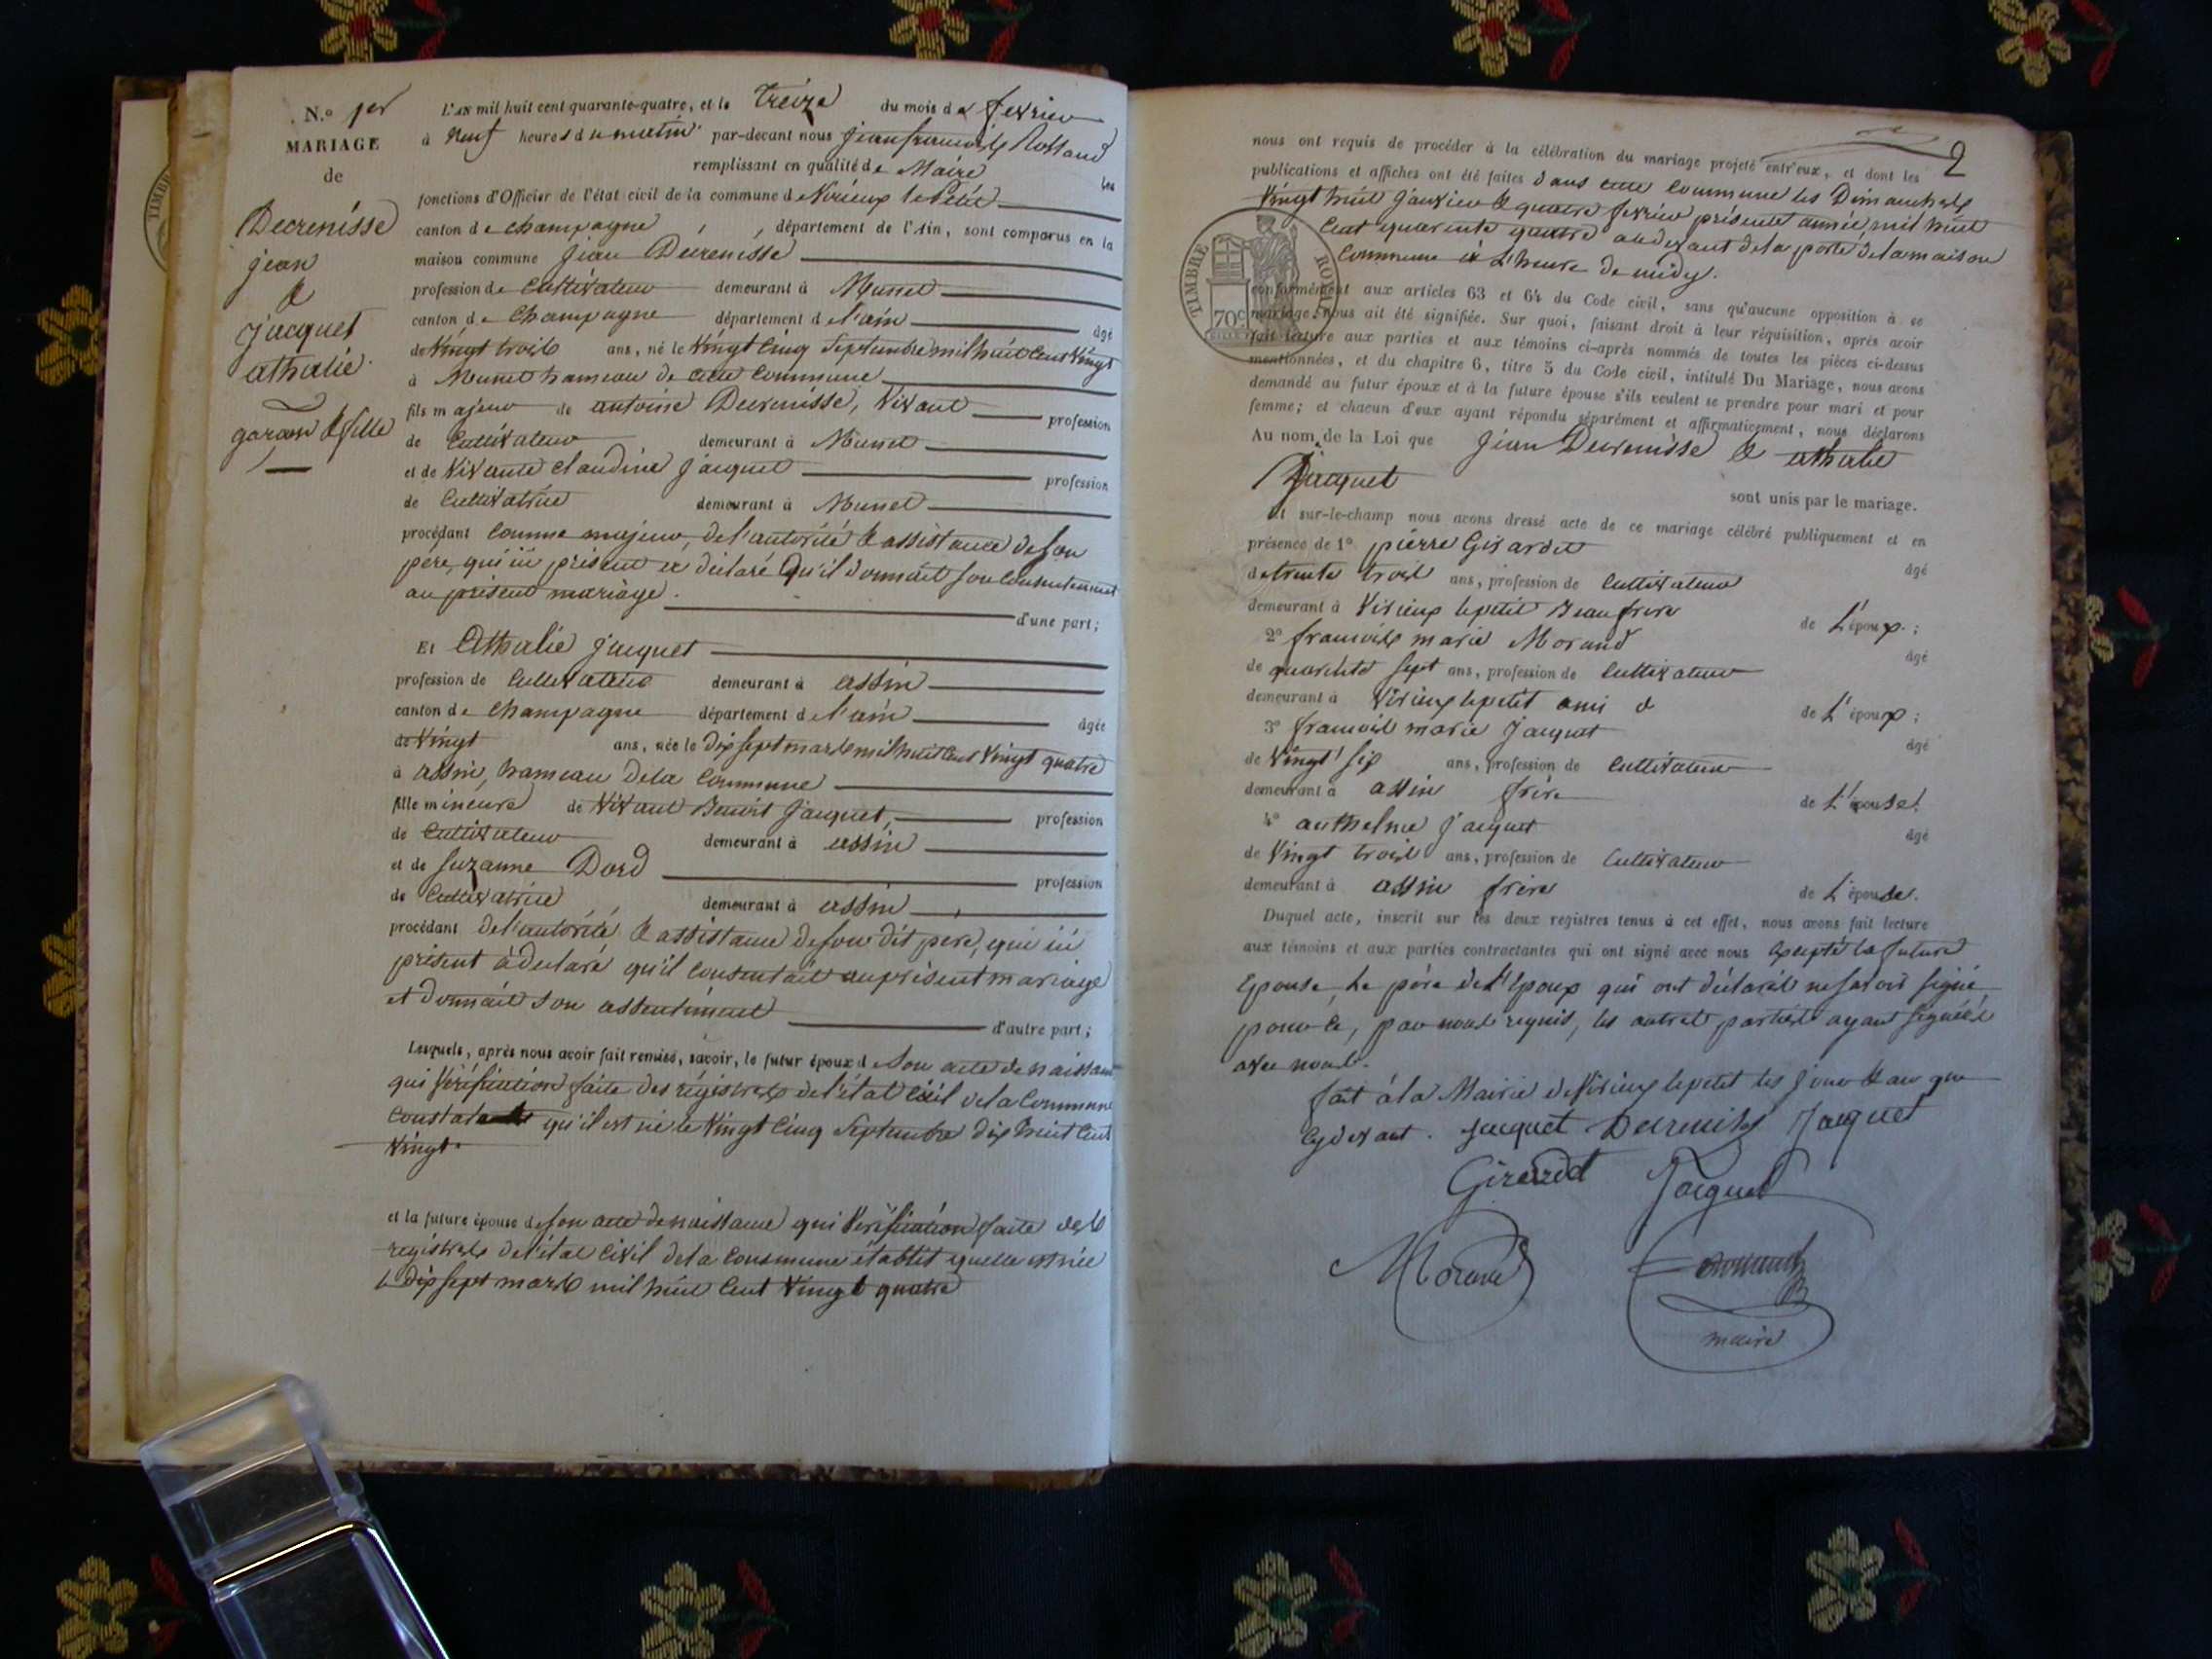 N.° 1er
MARIAGE
de
Decrenisse
jean
&
jacquet
athalie
garçon & fille
L'an mil huit cent quarante-quatre, et le treize du mois de fevrier
à Neuf heures du matin par-devant nous jean françois Rolland
remplissant en qualité de Maire les
fonctions d'Officier de l'état civil de la commune de Virieux le Petit
canton de champagne, département de l'Ain, sont comparus en la
maison commune Jean Decrenisse
profession de Cultivateur demeurant à Munet
canton de Champagne département de l'ain âgé
de Vingt trois ans, né le Vingt Cinq Septembre mil huit Cent Vingt
à Munet hameau de cette Commune
fils majeur de antoine Decrenisse, Vivant profession
de Cultivateur demeurant à Munet
et de Vivante claudine jacquet profession
de Cultivatrice demeurant à Munet
procédant Comme majeur, de l'autorité & assistance de son
père, qui ici présent a déclaré Qu'il donnait son Consentement
au présent mariage.
d'une part;
Et Athalie jacquet
profession de Cultivateur demeurant à assin
canton de Champagne département de l'ain âgée
de Vingt ans, née le dix sept mars mil huit Cent Vingt quatre
à assin, hameau de la Commune
fille mineure de Vivant Benoit Jacquet, profession
de Cultivateur demeurant à assin
et de Suzanne Dord profession
de Cultivatrice demeurant à assin
procédant de l'autorité & assistance de son dit pere, qui ici
présent a déclaré qu'il Consentait au présent mariage
et donnait son assentiment
d'autre part;
Lesquels, après nous avoir fait remise, savoir, le futur époux d Son acte de naissance
qui Vérification faite des régistres de l'état Civil de la Commune
Constate qu'il est né le Vingt Cinq Septembre dix huit Cent
Vingt.
et la future épouse de son acte de naissance qui Vérification faite des
registres de l'état Civil de la Commune établit quelle est née
le dix sept mars mil huit Cent Vingt quatre
2
nous ont requis de procéder à la célébration du mariage projeté entr'eux, et dont les
publications et affiches ont été faites dans cette Commune les Dimanches
Vingt huit Janvier & quatre fevrier présente année mil huit
Cent quarante quatre au devant de la porte de la maison
Commune à L'heure de midy.
TIMBRE ROYAL
70c
conformément aux articles 63 et 64 du Code civil, sans qu'aucune opposition à ce
mariage nous ait été signifiée. Sur quoi, faisant droit à leur réquisition, après avoir
fait lecture aux parties et aux témoins ci-après nommés de toutes les pièces ci-dessus
mentionnées, et du chapitre 6, titre 5 du Code civil, intitulé Du Mariage, nous avons
demandé au futur époux et à la future épouse s'ils veulent se prendre pour mari et pour
femme; et chacun d'eux ayant répondu séparément et affirmativement, nous déclarons
Au nom de la Loi que Jean Decrenisse & athalie
Jacquet
sont unis par le mariage.
Et sur-le-champ nous avons dressé acte de ce mariage célébré publiquement et en
présence de 1° pierre Girardet âgé
de trente trois ans, profession de Cultivateur
demeurant à Virieux le petit Beau frere de L'époux;
2° françois marie Morand âgé
de quarante sept ans, profession de Cultivateur
demeurant à Virieux le petit ami de L'époux;
3° françois marie Jacquet âgé
de Vingt six ans, profession de Cultivateur
demeurant à assin frère de L'épouse.
4° anthelme Jacquet âgé
de Vingt trois ans, profession de Cultivateur
demeurant à assin frère de L'épouse.
Duquel acte, inscrit sur les deux registres tenus à cet effet, nous avons fait lecture
aux témoins et aux parties contractantes qui ont signé avec nous Excepté la future
Epouse, Le père de l'Epoux qui ont déclaré ne savoir signé
pour ce, par nous requis, les autres parties ayant signées
avec nous.
fait à la Mairie de Virieux le petit les jour & an que
Cy devant. Jacquet Decrenisse Jacquet
Girardet Jacquet
Morand
maire